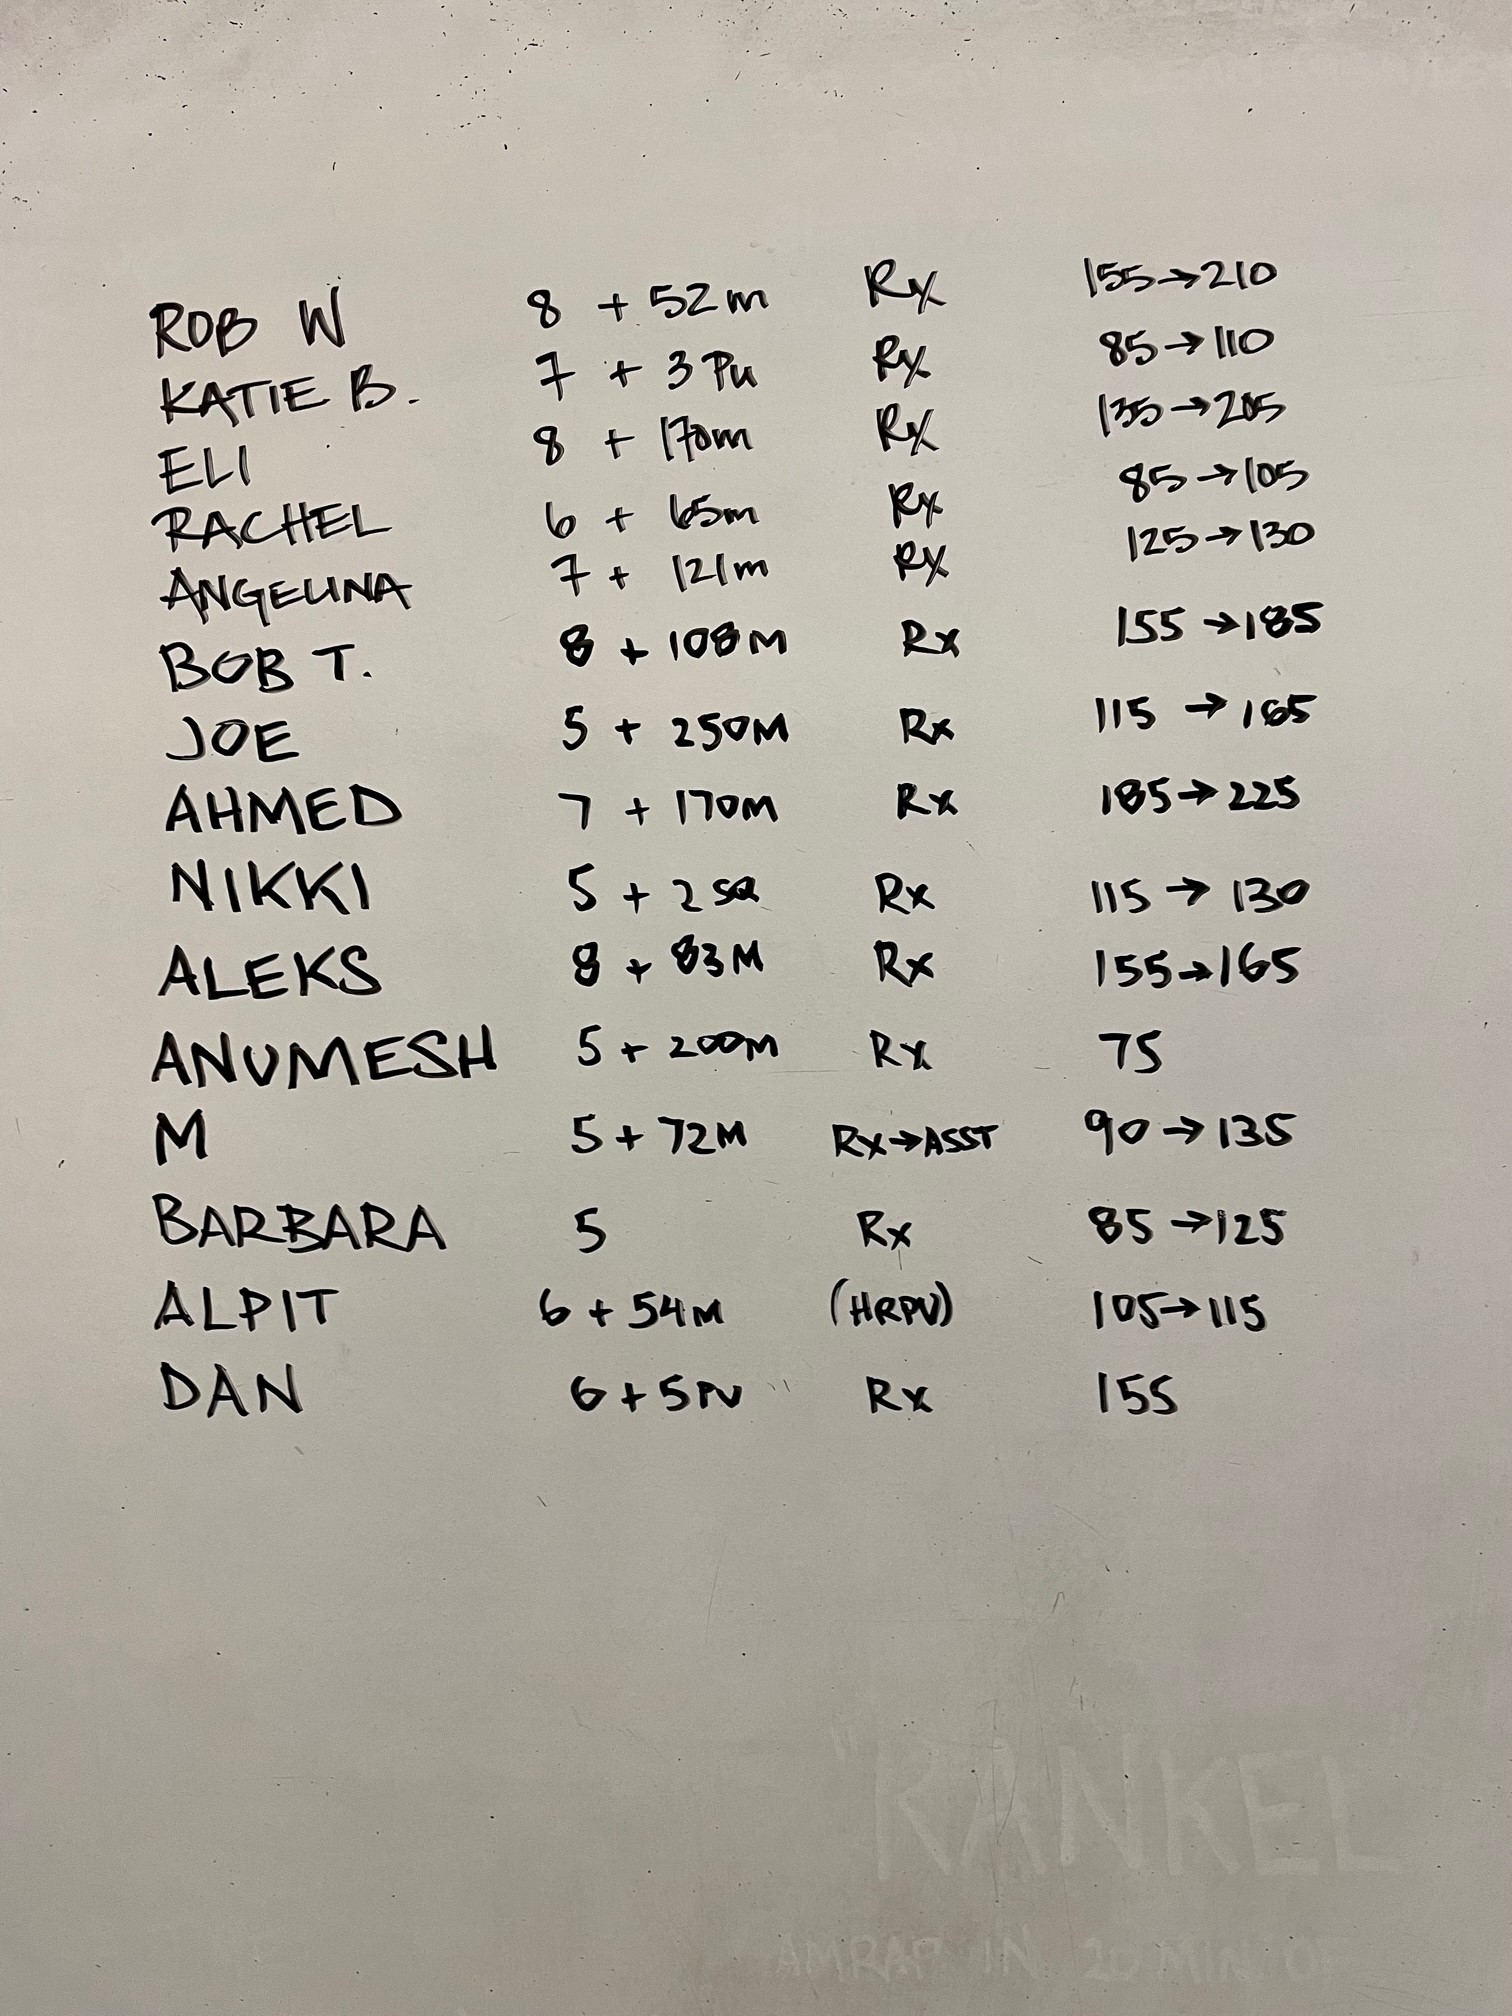 ROB W 8 + 52m Rx 155→210
KATIE B. 7 + 3 Pu Rx 85→110
ELI 8 + 170m Rx 135→205
RACHEL 6 + 65m Rx 85→105
ANGELINA 7 + 121m Rx 125→130
BOB T. 8 + 108M Rx 155→185
JOE 5 + 250M Rx 115→165
AHMED 7 + 170M Rx 185→225
NIKKI 5 + 2 SQ Rx 115→130
ALEKS 8 + 83M Rx 155→165
ANUMESH 5 + 200M Rx 75
M 5 + 72M Rx→ASST 90→135
BARBARA 5 Rx 85→125
ALPIT 6 + 54M (HRPU) 105→115
DAN 6 + 5PU Rx 155
"RANKEL"
AMRAP IN 20 MIN OF